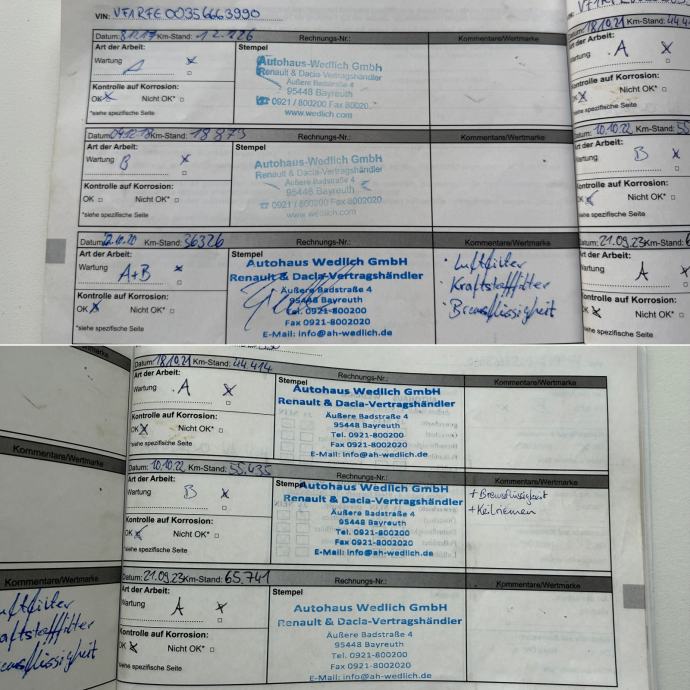 VIN: VF1RFE00355663990
Datum: Km-Stand: 12.726 Rechnungs-Nr.: Kommentare/Wertmarke
Art der Arbeit: Stempel
Wartung A x
Autohaus-Wedlich GmbH
Renault & Dacia-Vertragshändler
Äußere Badstraße 4
95448 Bayreuth
☎ 0921 / 800200 Fax 80020
www.wedlich.com
Kontrolle auf Korrosion:
OK x Nicht OK* □
*siehe spezifische Seite
Datum: 04.12.18 Km-Stand: 18873 Rechnungs-Nr.: Kommentare/Wertmarke
Art der Arbeit: Stempel
Wartung B x
Autohaus-Wedlich GmbH
Renault & Dacia-Vertragshändler
Äußere Badstraße 4
95448 Bayreuth
☎ 0921 / 800200 Fax 8002020
www.wedlich.com
Kontrolle auf Korrosion:
OK □ Nicht OK* □
*siehe spezifische Seite
Datum: .10.20 Km-Stand: 36326 Rechnungs-Nr.: Kommentare/Wertmarke
Art der Arbeit: Stempel
Wartung A+B x
Autohaus Wedlich GmbH
Renault & Dacia-Vertragshändler
Äußere Badstraße 4
95448 Bayreuth
Tel. 0921-800200
Fax 0921-8002020
E-Mail: info@ah-wedlich.de
· Luftfilter
· Kraftstofffilter
· Bremsflüssigkeit
Kontrolle auf Korrosion:
OK x Nicht OK* □
*siehe spezifische Seite
18.10.21
Art der Arbeit:
Wartung A
Kontrolle auf Korrosion:
OK x Nicht OK* □
*siehe spezifische Seite
Datum: 10.10.22 Km-Stand:
Art der Arbeit:
Wartung B
Kontrolle auf Korrosion:
OK x Nicht OK* □
*siehe spezifische Seite
Datum: 21.09.23 Km-Stand:
Art der Arbeit:
Wartung A
Kontrolle auf Korrosion:
OK x Nicht OK* □
*siehe spezifische Seite
Datum: 18.10.21 Km-Stand: 44.414 Rechnungs-Nr.: Kommentare/Wertmarke
Art der Arbeit: Stempel
Wartung A x
Autohaus Wedlich GmbH
Renault & Dacia-Vertragshändler
Äußere Badstraße 4
95448 Bayreuth
Tel. 0921-800200
Fax 0921-8002020
E-Mail: info@ah-wedlich.de
Kontrolle auf Korrosion:
OK x Nicht OK* □
*siehe spezifische Seite
Kommentare/Wertmarke
Datum: 10.10.22 Km-Stand: 55.435 Rechnungs-Nr.: Kommentare/Wertmarke
Art der Arbeit: Stempel
Wartung B x
Autohaus Wedlich GmbH
Renault & Dacia-Vertragshändler
Äußere Badstraße 4
95448 Bayreuth
Tel. 0921-800200
Fax 0921-8002020
E-Mail: info@ah-wedlich.de
+ Bremsflüssigkeit
+ Keilriemen
Kontrolle auf Korrosion:
OK x Nicht OK* □
*siehe spezifische Seite
Kommentare/Wertmarke
Datum: 21.09.23 Km-Stand: 65.741 Rechnungs-Nr.: Kommentare/Wertmarke
Art der Arbeit: Stempel
Wartung A x
Autohaus Wedlich GmbH
Renault & Dacia-Vertragshändler
Äußere Badstraße 4
95448 Bayreuth
Tel. 0921-800200
Fax 0921-8002020
E-Mail: info@ah-wedlich.de
Kontrolle auf Korrosion:
OK x Nicht OK* □
*siehe spezifische Seite